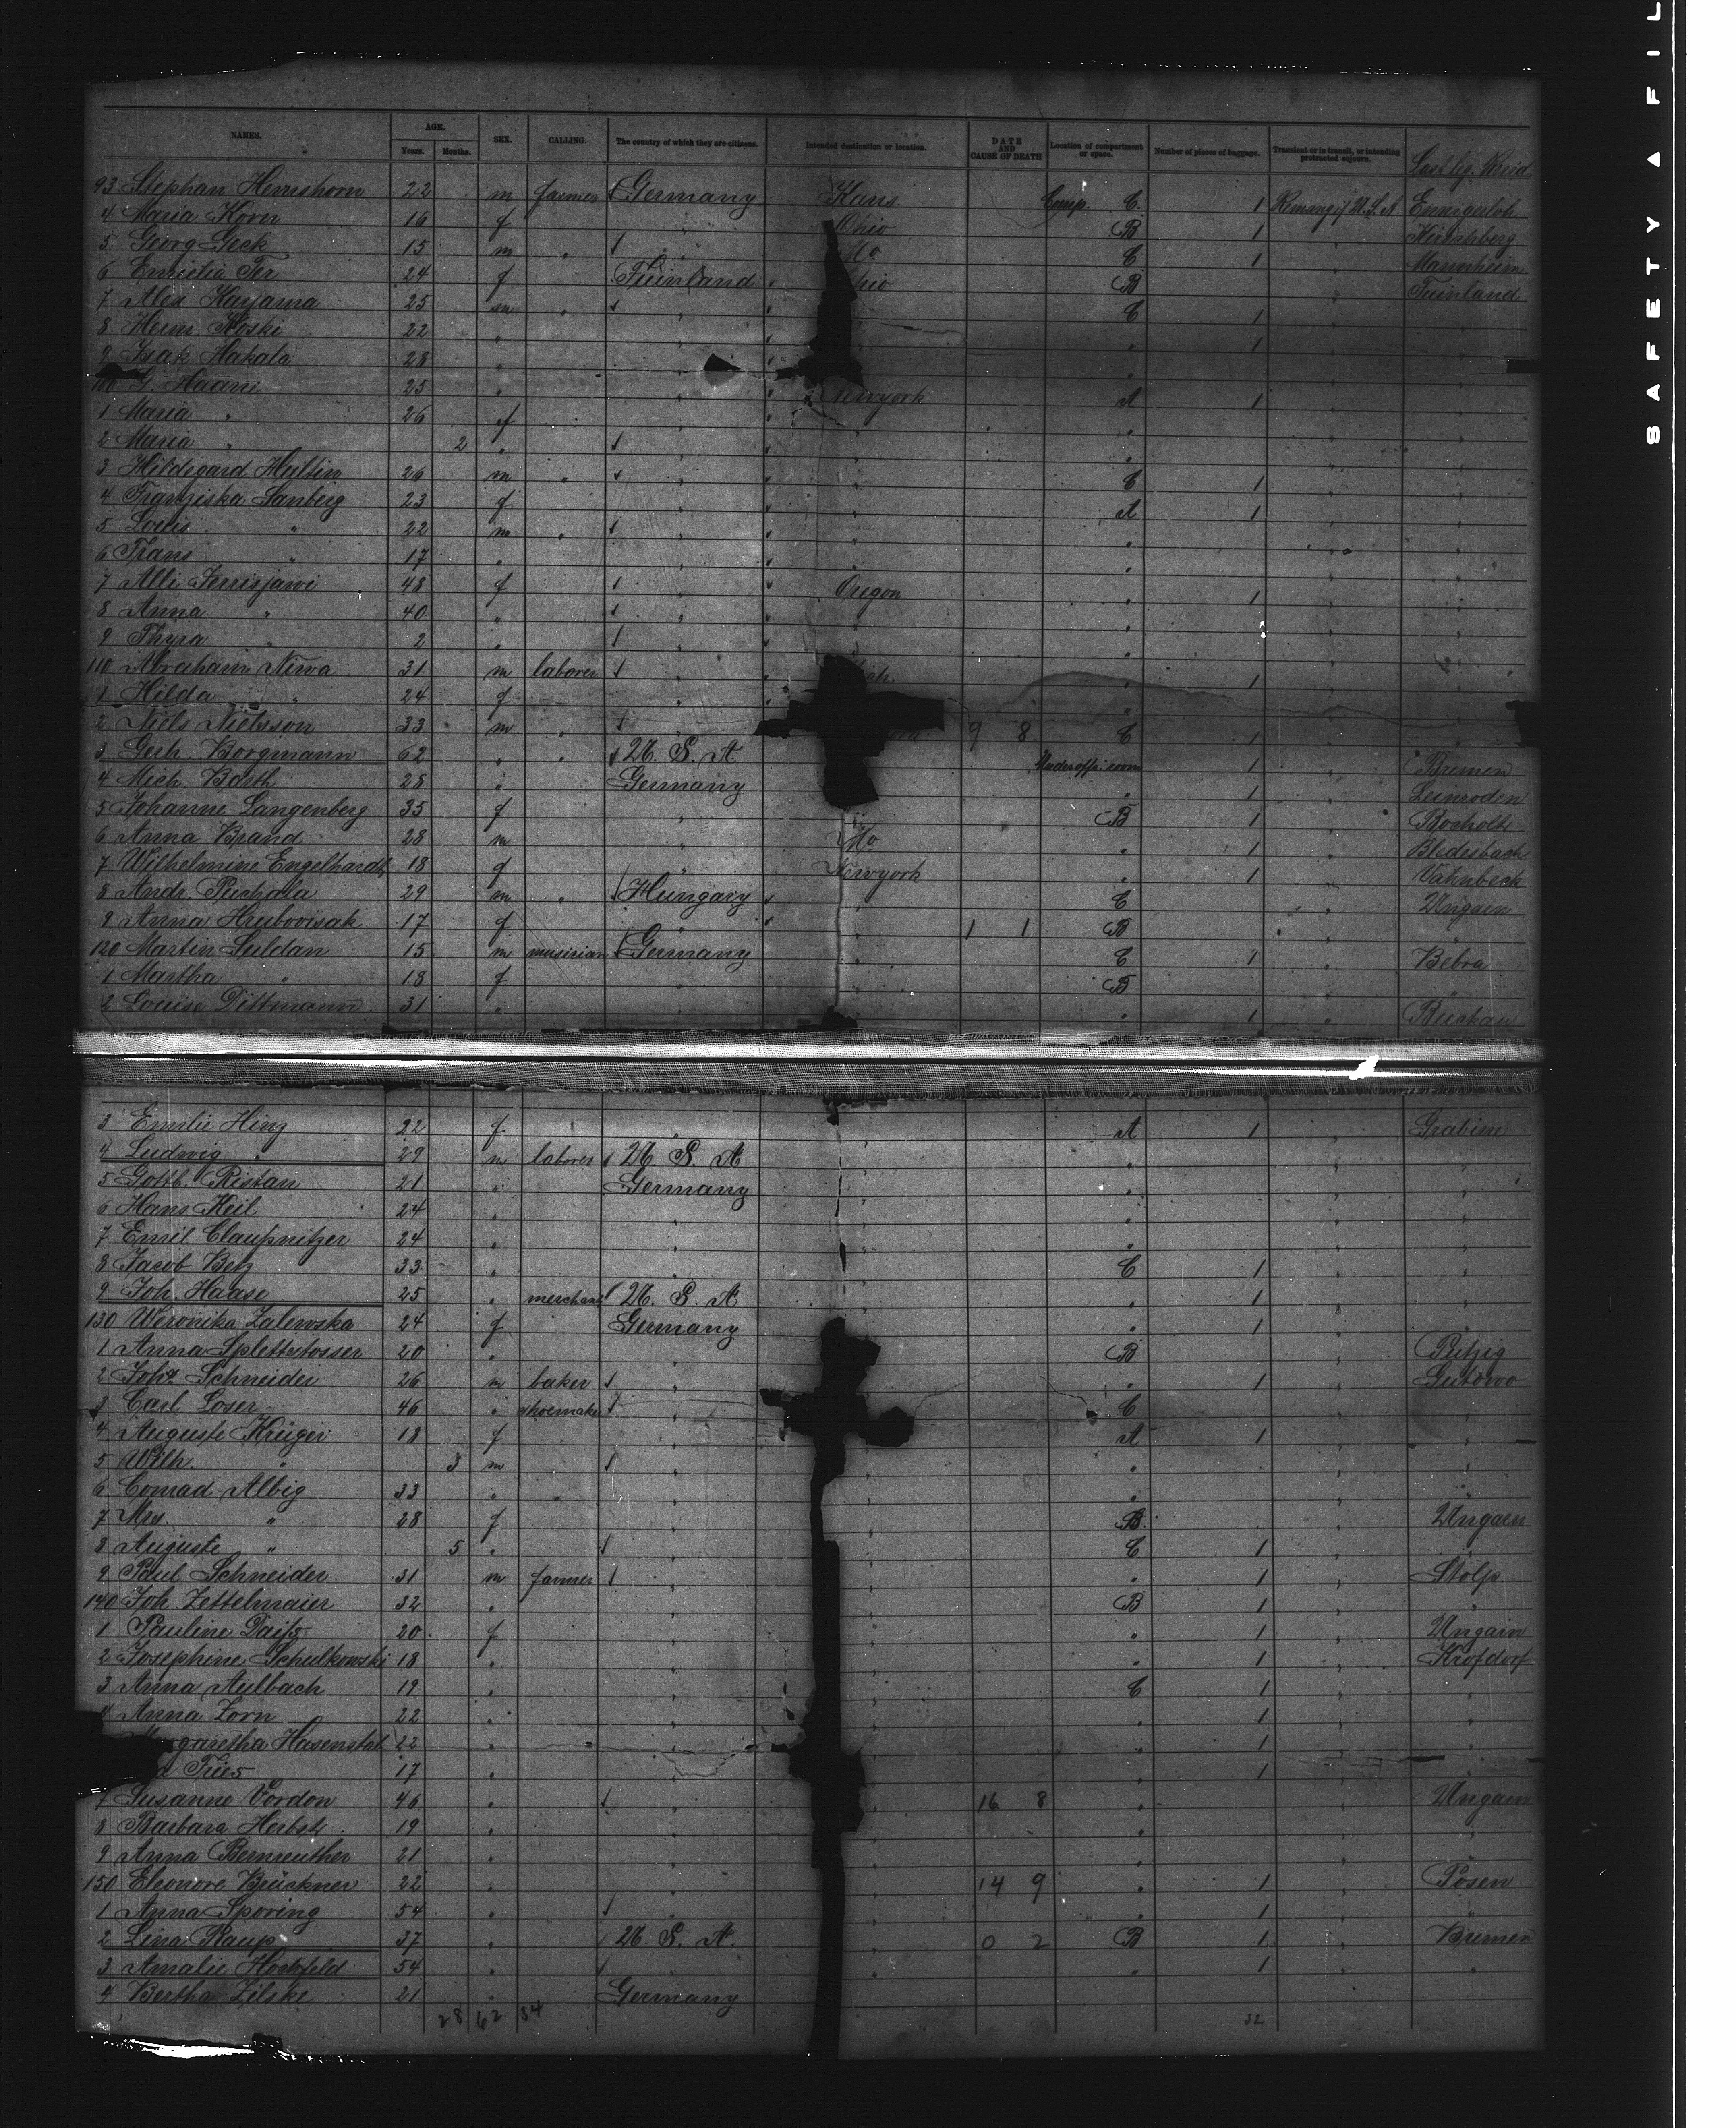 NAMES. AGE. Years. Months. SEX. CALLING. The country of which they are citizens. Intended destination or location. DATE AND CAUSE OF DEATH Location of compartment or space. Number of pieces of baggage. Transient or in transit, or intending protracted sojourn.
93 Stephan Hemshorn 22 m farmer Germany Kans. Comp. C. 1 Ennigerloh
4 Maria Korn 16 f " Ohio B 1 Hirschberg
5 Georg Geck 15 m " " Mo C 1 Mannheim
6 Emielia Ter 24 f Finnland hio B Finnland
7 Alex Kayama 25 m " " C 1 "
8 Heim. Koski 22 " " 1 "
9 Isak Hakala 28 " "
100 G. Haani 25 " " Newyork A 1 "
1 Maria " 26 f " "
2 Maria " 2 " " "
3 Hildegard Hultin 26 m " " C 1 "
4 Franziska Sanberg 23 f " " A 1 "
5 Louis " 22 m " " "
6 Frans " 17 " " "
7 Alli Jerrisjarvi 48 f " Oregon " 1 "
8 Anna " 40 " " "
9 Thyra " 2 " " "
110 Abraham Niwa 31 m laborer " " 1 "
1 Hilda " 24 f " "
2 Niels Nielsson 33 m " " 9 8 C 1 "
3 Gerh. Borgmann 62 " " U. S. A 1 " Bremen
4 Mich Barth 28 " Germany " 1 " Leimrodin
5 Johanne Langenberg 35 f " B 1 " Bocholt
6 Anna Brand 28 m " Mo " 1 " Bledesbach
7 Wilhelmine Engelhardt 18 f Newyork " 1 " Vahnbeck
8 Andr. Puchala 29 m " Hungary " C " Ungarn
9 Anna Hrubovisak 17 f " " 1 1 B "
120 Martin Suldan 15 m musician Germany " C 1 " Bebra
1 Martha " 18 f " " B " "
2 Louise Dittmann 31 " " " " 1 "
3 Emilie Hinz 22 f " " A 1 " Grabine
4 Ludwig " 29 m laborer U. S. A " " "
5 Gottl. Ristau 21 " Germany " " "
6 Hans Keil 24 " " " " "
7 Emil Claußnitzer 24 " " " " "
8 Jacob Betz 33 " " " C 1 " "
9 Joh. Haase 25 " merchant U. S. A " 1 " "
130 Weronika Zalewska 24 f Germany " 1 " "
1 Anna Splettstosser 20 " " B " Putzig
2 Joh. Schneider 26 m baker " " 1 " Gutowo
3 Carl Loser 46 " shoemaker " C " "
4 Auguste Krüger 18 f " A 1 " "
5 Wilh. " 3 m " " " "
6 Conrad Albig 33 " " " " " "
7 Mrs. " 28 f " B " Ungarn
8 Auguste " 5 " " C 1 " "
9 Paul Schneider 31 m farmer " " 1 " Stolp
140 Joh. Zettelmaier 32 " " B 1 " "
1 Pauline Daiß 20 f " " 1 " Ungarn
2 Josephine Schulkowski 18 " " " 1 " Krofdorf
3 Anna Aulbach 19 " " C 1 " "
4 Anna Zorn 22 " " " 1 " "
garetha Hasenstab 22 " " " 1 "
17 " " " 1 "
7 Susanne Vordon 46 " " 16 8 " " Ungarn
8 Barbara Herbst 19 " " " " "
9 Anna Bernreuther 21 " " " " "
150 Eleonore Brückner 22 " " 14 9 " 1 " Posen
1 Anna Sporing 54 " " " 1 " "
2 Lina Raup 37 " U. S. A. 0 2 B 1 " Bremen
3 Amalie Hochfeld 54 " " " " 1 " "
4 Bertha Zilske 21 " Germany
28 62 34 32
SAFETY A FIL